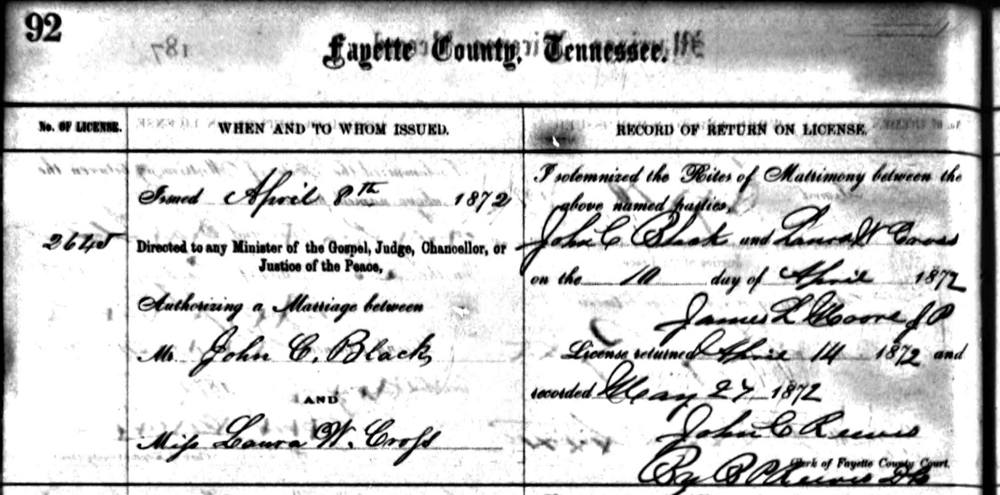 92
Fayette County, Tennessee.
No. OF LICENSE.
WHEN AND TO WHOM ISSUED.
RECORD OF RETURN ON LICENSE.
2645
Issued April 8th 1872
Directed to any Minister of the Gospel, Judge, Chancellor, or
Justice of the Peace,
Authorizing a Marriage between
Mr. John C. Black
AND
Miss Laura W. Cross
I solemnized the Rites of Matrimony between the
above named parties,
John C. Black and Laura W Cross
on the 10 day of April 1872
James L Moore J P
License returned April 14 1872 and
recorded May 27 1872
John C Reeves
Clerk of Fayette County Court.
By